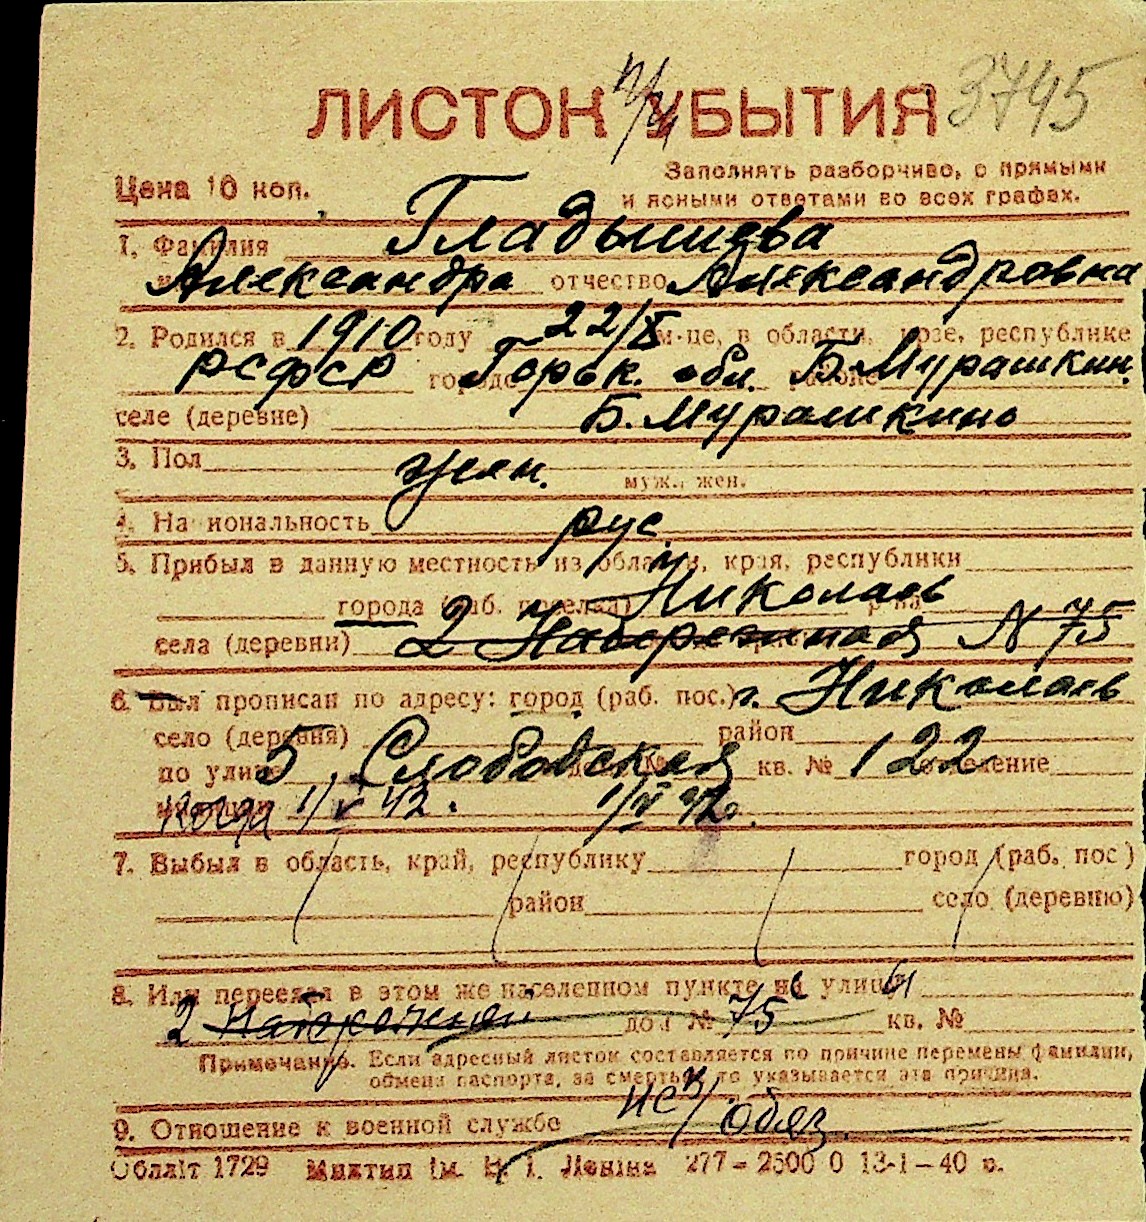 3745
ЛИСТОК УБЫТИЯ
Цена 10 коп.
Заполнять разборчиво, с прямыми
и ясными ответами во всех графах.
1. Фамилия Гладышева
Александра отчество Александровна
2. Родился в 1910 году 22/X м-це, в области, крае, республике
РСФСР городе Горьк. обл. Б Мурашкин. районе
селе (деревне) Б. Мурашкино
3. Пол жен. муж., жен.
4. Национальность рус.
5. Прибыл в данную местность из области, края, республики
города (раб. поселка) Николаев р-на
села (деревни) 2 Набережная N 75
6. Был прописан по адресу: город (раб. пос.) г. Николаев
село (деревня) район
по улице 5 Слободская дом № кв. № 122 отделение
милиции Когда 1/V 42. 1/V 42г.
7. Выбыл в область, край, республику город (раб. пос)
район село (деревню)
8. Или переехал в этом же населенном пункте на улицу
2 Набережной дом № 75 кв. №
Примечание. Если адресный листок составляется по причине перемены фамилии,
обмена паспорта, за смертью, то указывается эта причина.
9. Отношение к военной службе н/обяз.
Обліт 1729 Миктип ім. В. І. Леніна 277–2500 0 13-1–40 р.